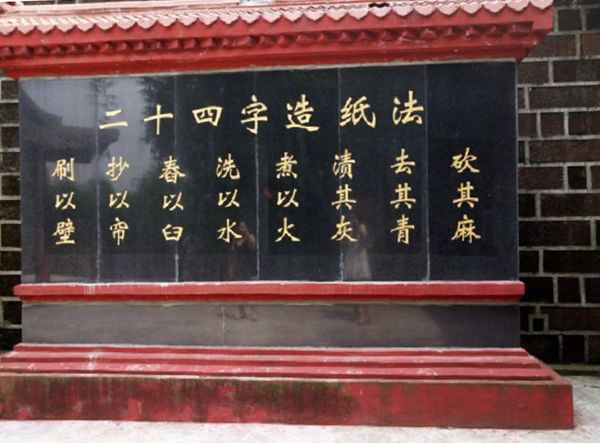 二十四字造纸法
砍其麻
去其青
渍其灰
煮以火
洗以水
舂以臼
抄以帘
刷以壁